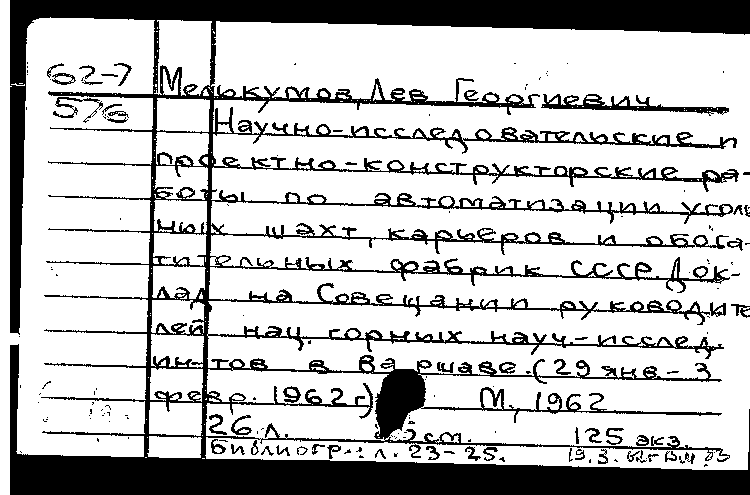 62-7
576
Мелькумов, Лев Георгиевич.
Научно-исследовательские и
проектно-конструкторские ра-
боты по автоматизации уголь
ных шахт, карьеров и обога-
тительных фабрик СССР. Док-
лад на Совещании руководите
лей нац. горных науч-исслед.
ин-тов в Варшаве. (29 янв - 3
февр. 1962 г) М., 1962
26 л. см. 125 экз.
Библиогр.: л. 23-25. 19.3.